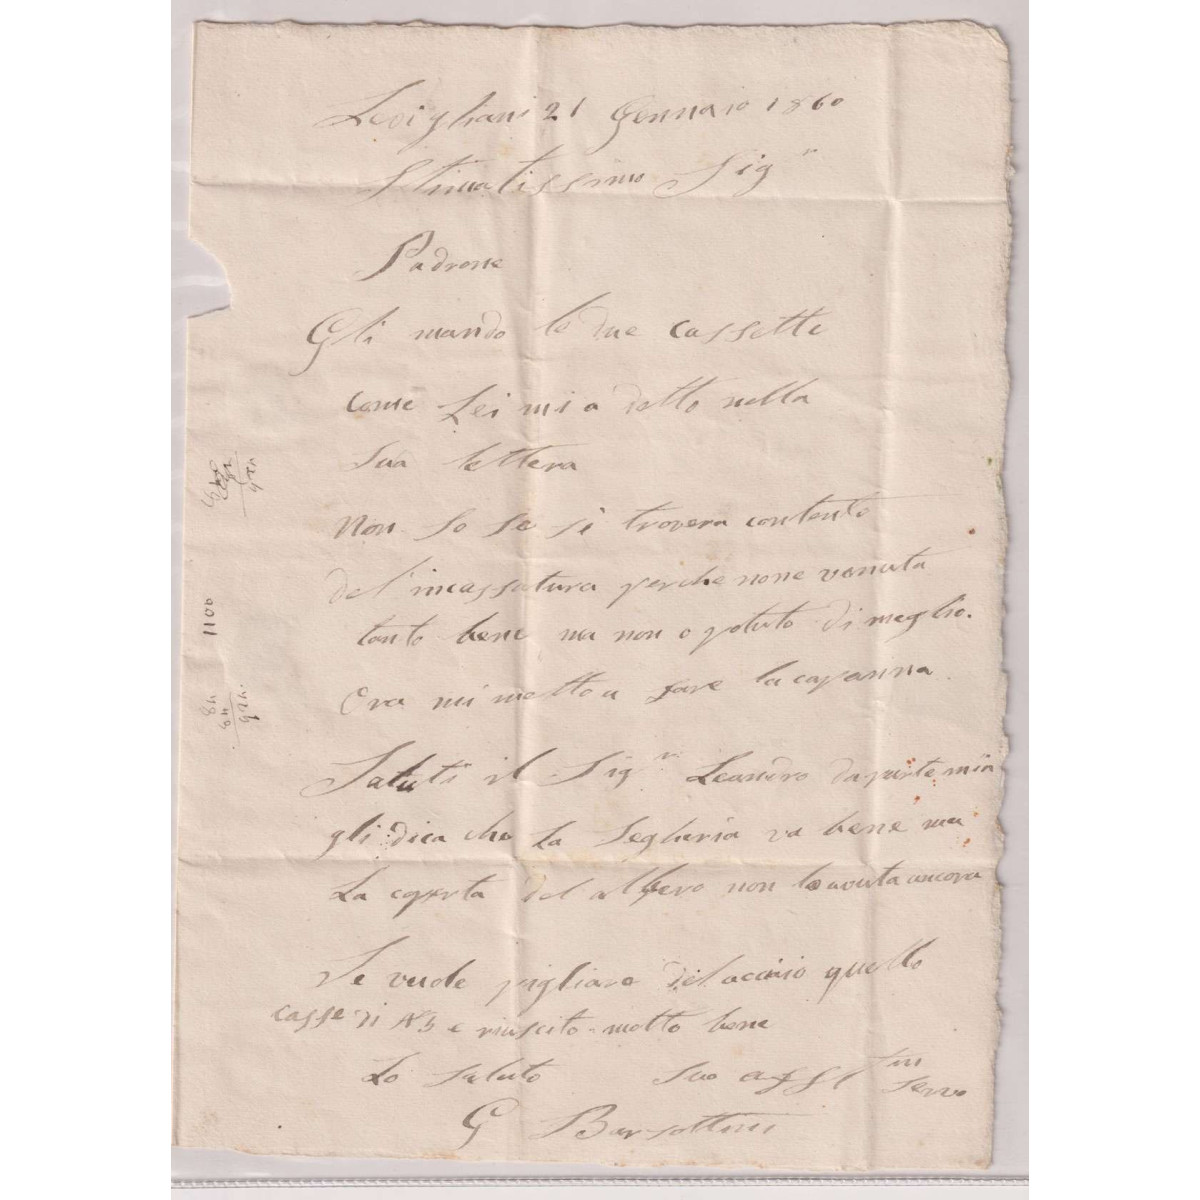 Levigliani 21 Gennaio 1860
Stimatissimo Sigr
Padrone
Gli mando le due cassette
come Lei mi a detto nella
sua lettera
Non so se si trovera contento
del'incassatura perche none venuta
tanto bene ma non o potuto di meglio.
Ora mi metto a fare la capanna
Saluti il Sigr Leandro da parte mia
gli dica che la Segheria va bene ma
La coperta del albero non la avuta ancora
Se vuole pigliare del acciaio quello
casse di N3 e riuscito molto bene
Lo saluto suo aff servo
G Barsottini
1100